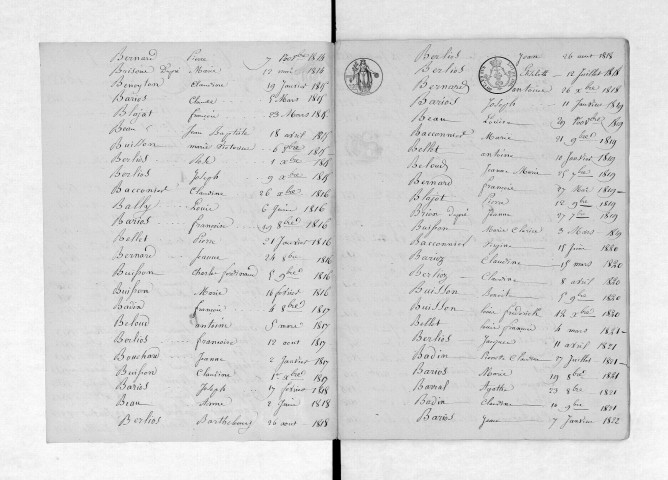 Bernard Pierre 7 Xbre 1814
Brison Dupré Marie 12 1816
Benoyton Claudine 19 Janvier 1815
Barios Claude 5 Mars 1815
Blojat françois 23 Mars 1815
Beau Jean Baptiste 18 avril 1815
Buisson marie 6 8bre 1815
Berlios 1 Xbre 1815
Berlios Joseph 9 Xbre 1815
Bacconnier Claudine 26 Xbre 1816
Bally Louis 6 Juin 1816
Barios françoise 19 8bre 1816
Bellet Pierre 21 Janvier 1816
Bernard Jeanne 24 8bre 1816
Buisson Charles ferdinand 5 9bre 1816
Buisson Marie 16 février 1816
Badin 4 8bre 1817
Beloud antoine 5 mars 1817
Berlios françoise 12 aout 1817
Bouchard Jeanne 2 Janvier 1817
Buisson Claudine 1er Xbre 1817
Barios Joseph 17 février 1818
Beau Anne 2 Juin 1818
Berlios Barthelemy 26 aout 1818
Berlios Jean 26 aout 1818
Berlios 12 Juillet 1818
Bernard antoine 26 Xbre 1818
Barios Joseph 11 Janvier 1819
Beau Louise 29 1819
Bacconnier Marie 21 9bre 1819
Bellet antoine 10 Janvier 1819
Beloud Jeanne Marie 25 1819
Bernard françois 27 Mai 1819
Blojat Pierre 12 9bre 1819
Brison dupré Jeanne 27 7bre 1819
Buisson Marie Clarice 3 Mars 1819
Bacconnier 15 Juin 1820
Barioz Claudine 15 mars 1820
Berlioz Claudine 8 avril 1820
Buisson Benoit 5 9bre 1820
Buisson frederick 12 Xbre 1820
Bellet françois 4 mars 1821
Berlios Jacques 11 avril 1821
Badin Claudine 17 Juillet 1821
Barios Marie 19 8bre 1821
Barral Agathe 23 8bre 1821
Badin Claudine 10 9bre 1821
Barios Jean 7 Janvier 1822